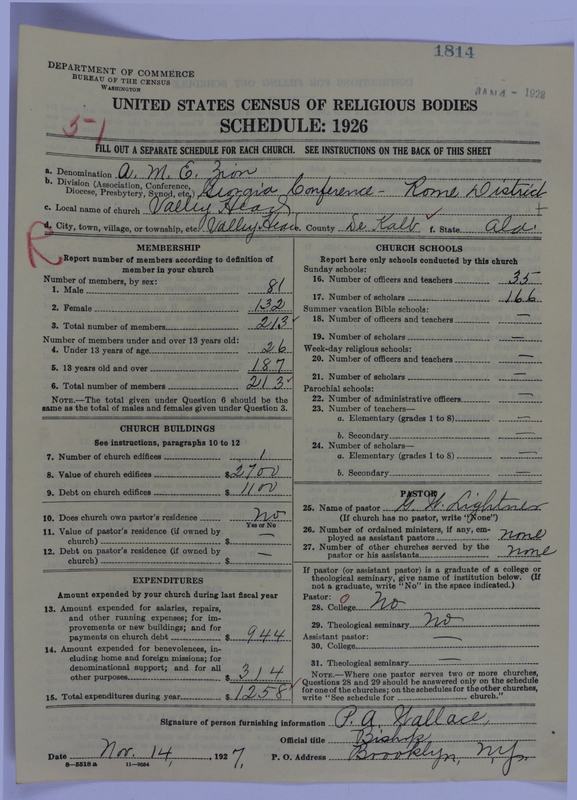 1814
DEPARTMENT OF COMMERCE
BUREAU OF THE CENSUS
WASHINGTON
JAN 4 - 1928
UNITED STATES CENSUS OF RELIGIOUS BODIES
5-1
SCHEDULE: 1926
FILL OUT A SEPARATE SCHEDULE FOR EACH CHURCH. SEE INSTRUCTIONS ON THE BACK OF THIS SHEET
a. Denomination A. M. E. Zion
b. Division (Association, Conference, Diocese, Presbytery, Synod, etc.) Georgia Conference - Rome District
c. Local name of church Valley Head
d. City, town, village, or township, etc. Valley Head e. County De Kalb ✓ f. State Ala.
R
MEMBERSHIP
Report number of members according to definition of
member in your church
Number of members, by sex:
1. Male 81
2. Female 132
3. Total number of members 213
Number of members under and over 13 years old:
4. Under 13 years of age 26
5. 13 years old and over 187
6. Total number of members 213
NOTE.—The total given under Question 6 should be
same as the total of males and females given under Question 3.
CHURCH BUILDINGS
See instructions, paragraphs 10 to 12
7. Number of church edifices 1
8. Value of church edifices $2700
9. Debt on church edifices $1100
10. Does church own pastor's residence No
Yes or No
11. Value of pastor's residence (if owned by
church) $ —
12. Debt on pastor's residence (if owned by
church) $ —
EXPENDITURES
Amount expended by church during last fiscal year
13. Amount expended for salaries, repairs,
and other running expenses; for im-
provements or new buildings; and for
payments on church debt $ 944
14. Amount expended for benevolences, in-
cluding home and foreign missions; for
denominational support; and for all
other purposes $ 314
15. Total expenditures during year $1258
CHURCH SCHOOLS
Report here only schools conducted by this church
Sunday schools:
16. Number of officers and teachers 35
17. Number of scholars 166
Summer vacation Bible schools:
18. Number of officers and teachers —
19. Number of scholars —
Week-day religious schools:
20. Number of officers and teachers —
21. Number of scholars —
Parochial schools:
22. Number of administrative officers —
23. Number of teachers—
a. Elementary (grades 1 to 8) —
b. Secondary —
24. Number of scholars—
a. Elementary (grades 1 to 8) —
b. Secondary —
PASTOR
25. Name of pastor G. W. Lightner
(If church has no pastor, write "None")
26. Number of ordained ministers, if any, em-
ployed as assistant pastors none
27. Number of other churches served by the
pastor or his assistants none
If pastor (or assistant pastor) is a graduate of a college or
theological seminary, give name of institution below. (If
not a graduate, write "No" in the space indicated.)
Pastor: 0
28. College No
29. Theological seminary No
Assistant pastor:
30. College —
31. Theological seminary —
NOTE.—Where one pastor serves two or more churches,
Questions 28 and 29 should be answered only on the schedule
for one of the churches; on the schedules for the other churches,
write "See schedule for church."
Signature of person furnishing information P. A. Wallace,
Official title Bishop
Date Nov. 14, 1927, P. O. Address Brooklyn, N.Y.
8-5518 a 11-9064